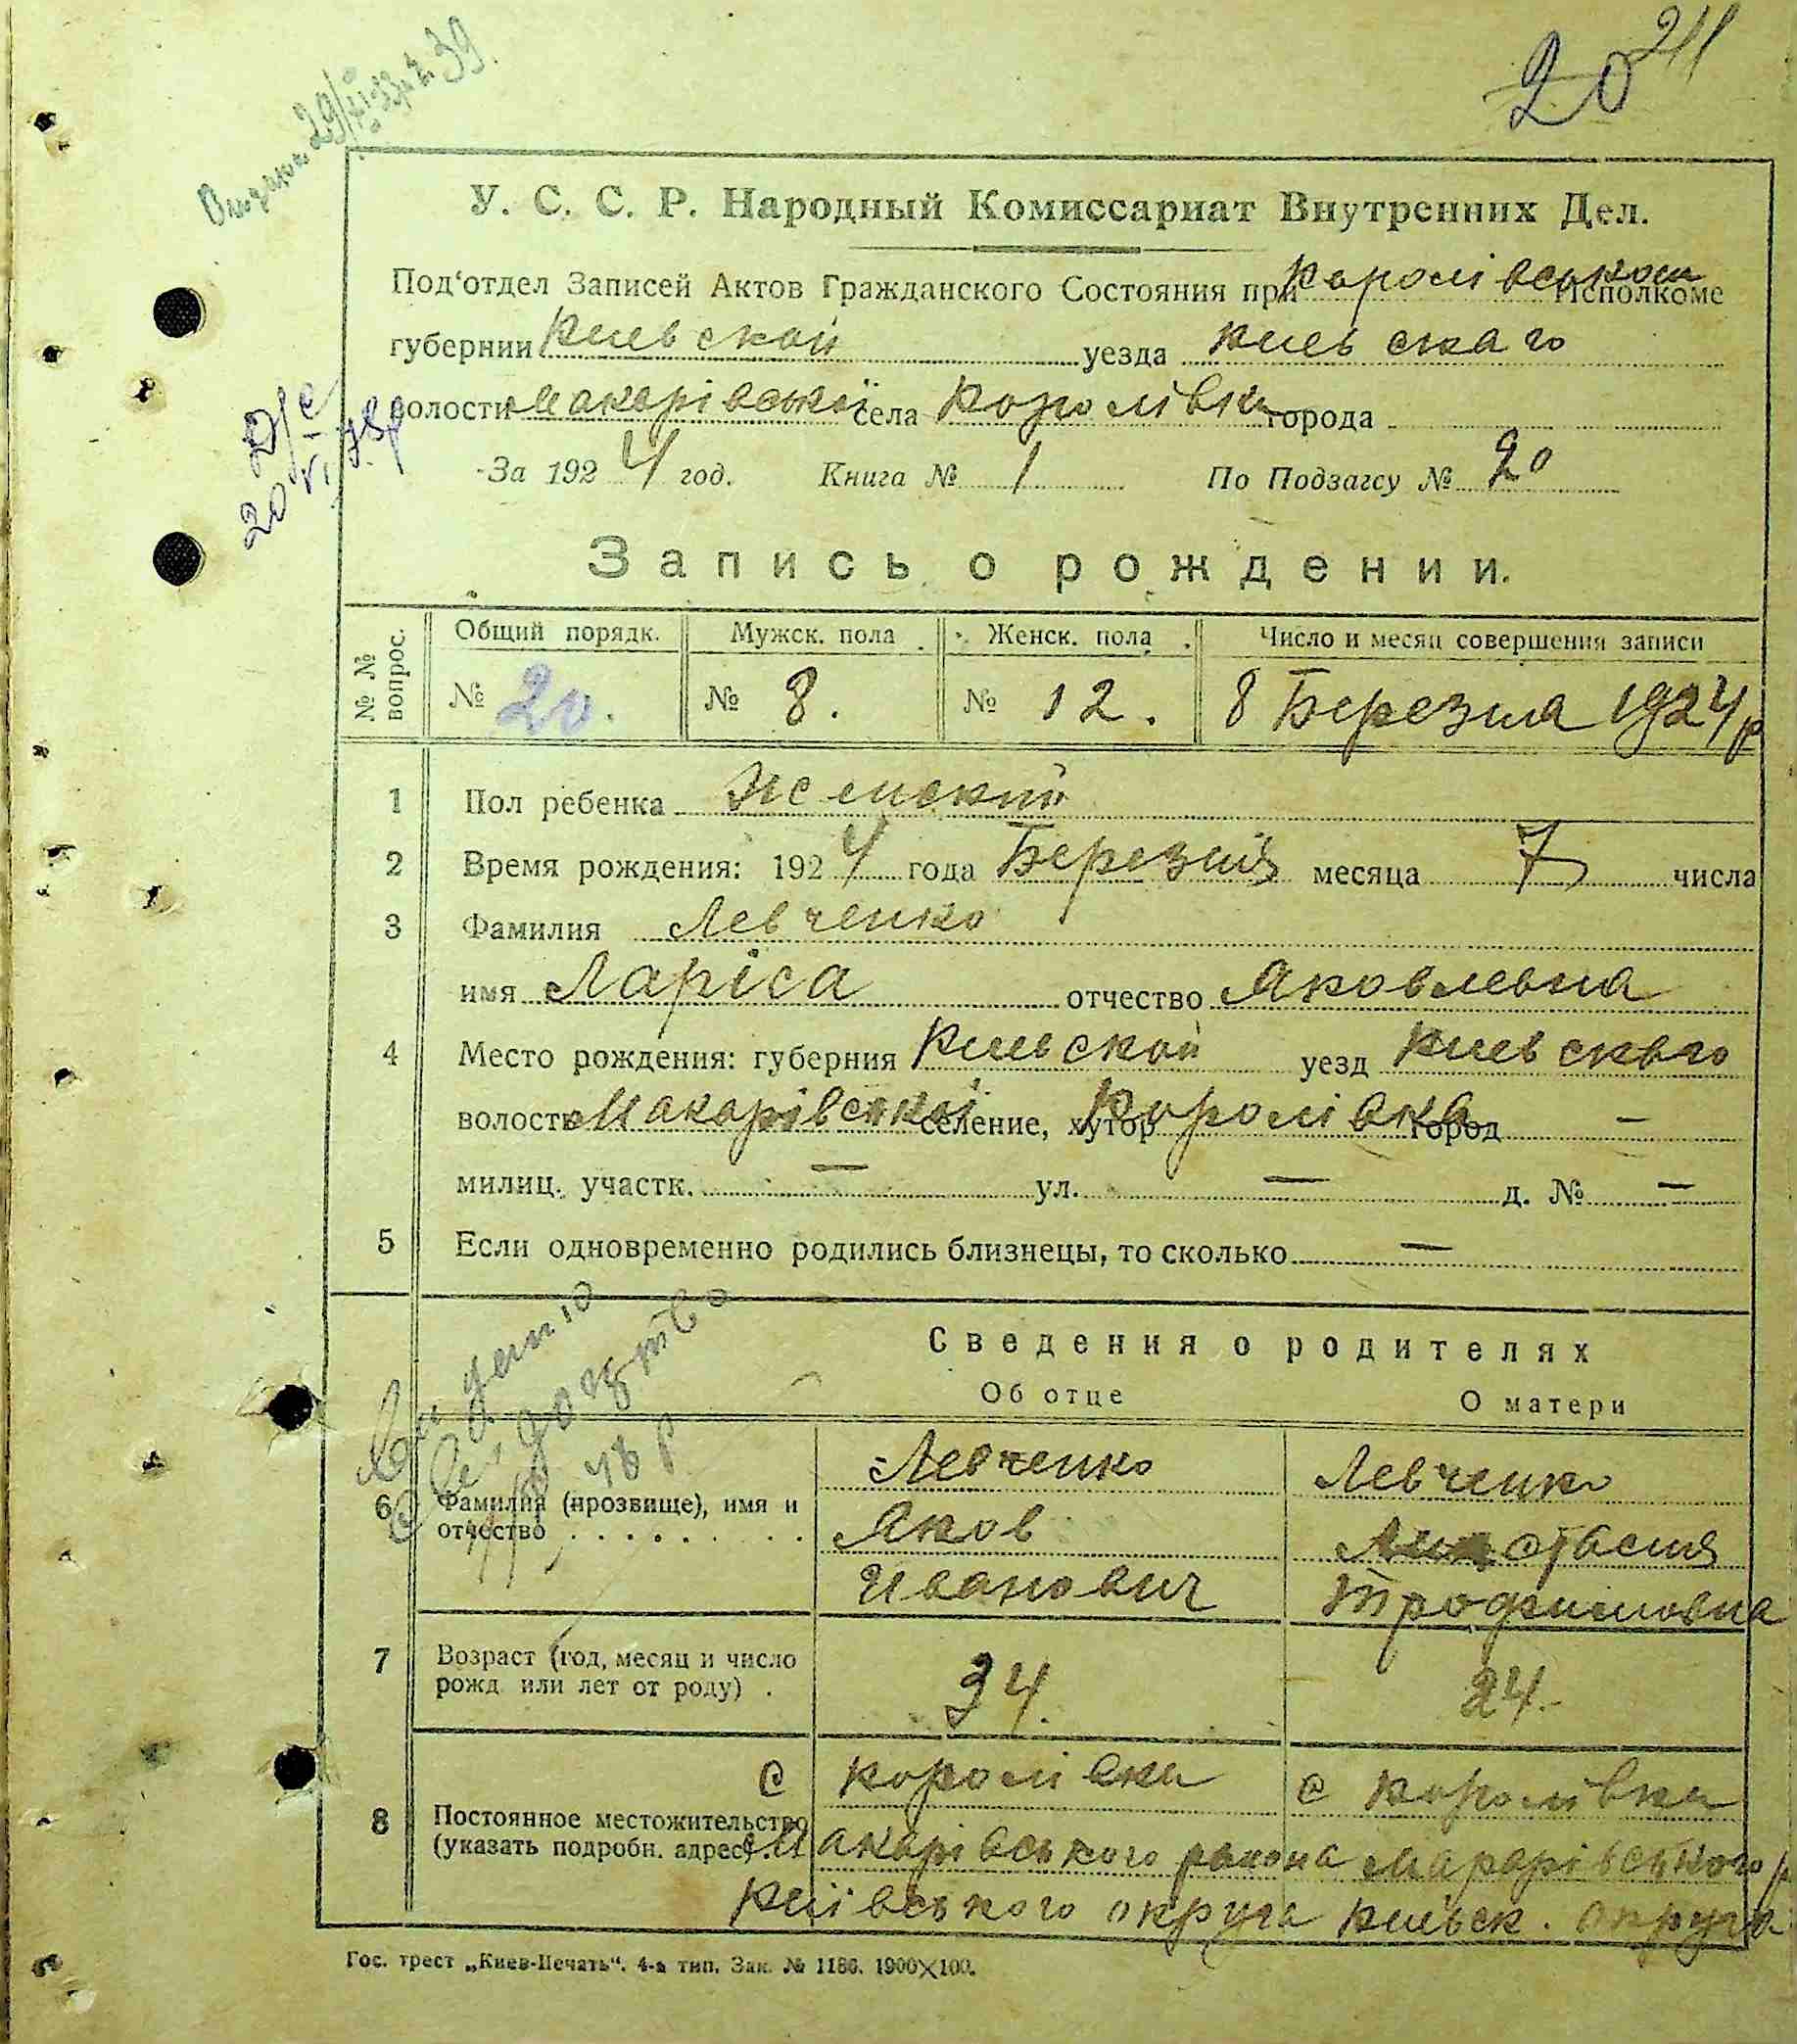 20 211
У. С. С. Р. Народный Комиссариат Внутренних Дел.
Под'отдел Записей Актов Гражданского Состояния при Королівськом Исполкоме
губернии Киевской уезда Киевскаго
волости Макарівської села Королівки города
За 1924 год. Книга № 1 По Подзагсу № 20
Запись о рождении.
№ № вопрос. Общий порядк. Мужск. пола Женск. пола Число и месяц совершения записи
№ 20. № 8. № 12. 8 Березня 1924 р
1 Пол ребенка Женский
2 Время рождения: 1924 года Березня месяца 7 числа
3 Фамилия Левченко
имя Ларіса отчество Яковлевна
4 Место рождения: губерния Киевской уезд Киевскаго
волость Макарівської селение, хутор Королівка город —
милиц. участк. — ул. — д. № —
5 Если одновременно родились близнецы, то сколько —
Сведения о родителях
Об отце О матери
Левченко Левченко
6 Фамилия (прозвище), имя и
отчество Яков Анастасия
Иванович Трофимовна
7 Возраст (год, месяц и число
рожд или лет от роду) . 34. 24.
с Королівки с Королівки
8 Постоянное местожительство
(указать подробн. адрес) . Макарівського района Макарівського р
Київського округа Киевск. округа
Гос. трест „Киев-Печать". 4-а тип. Зак. № 1186. 1900×100.